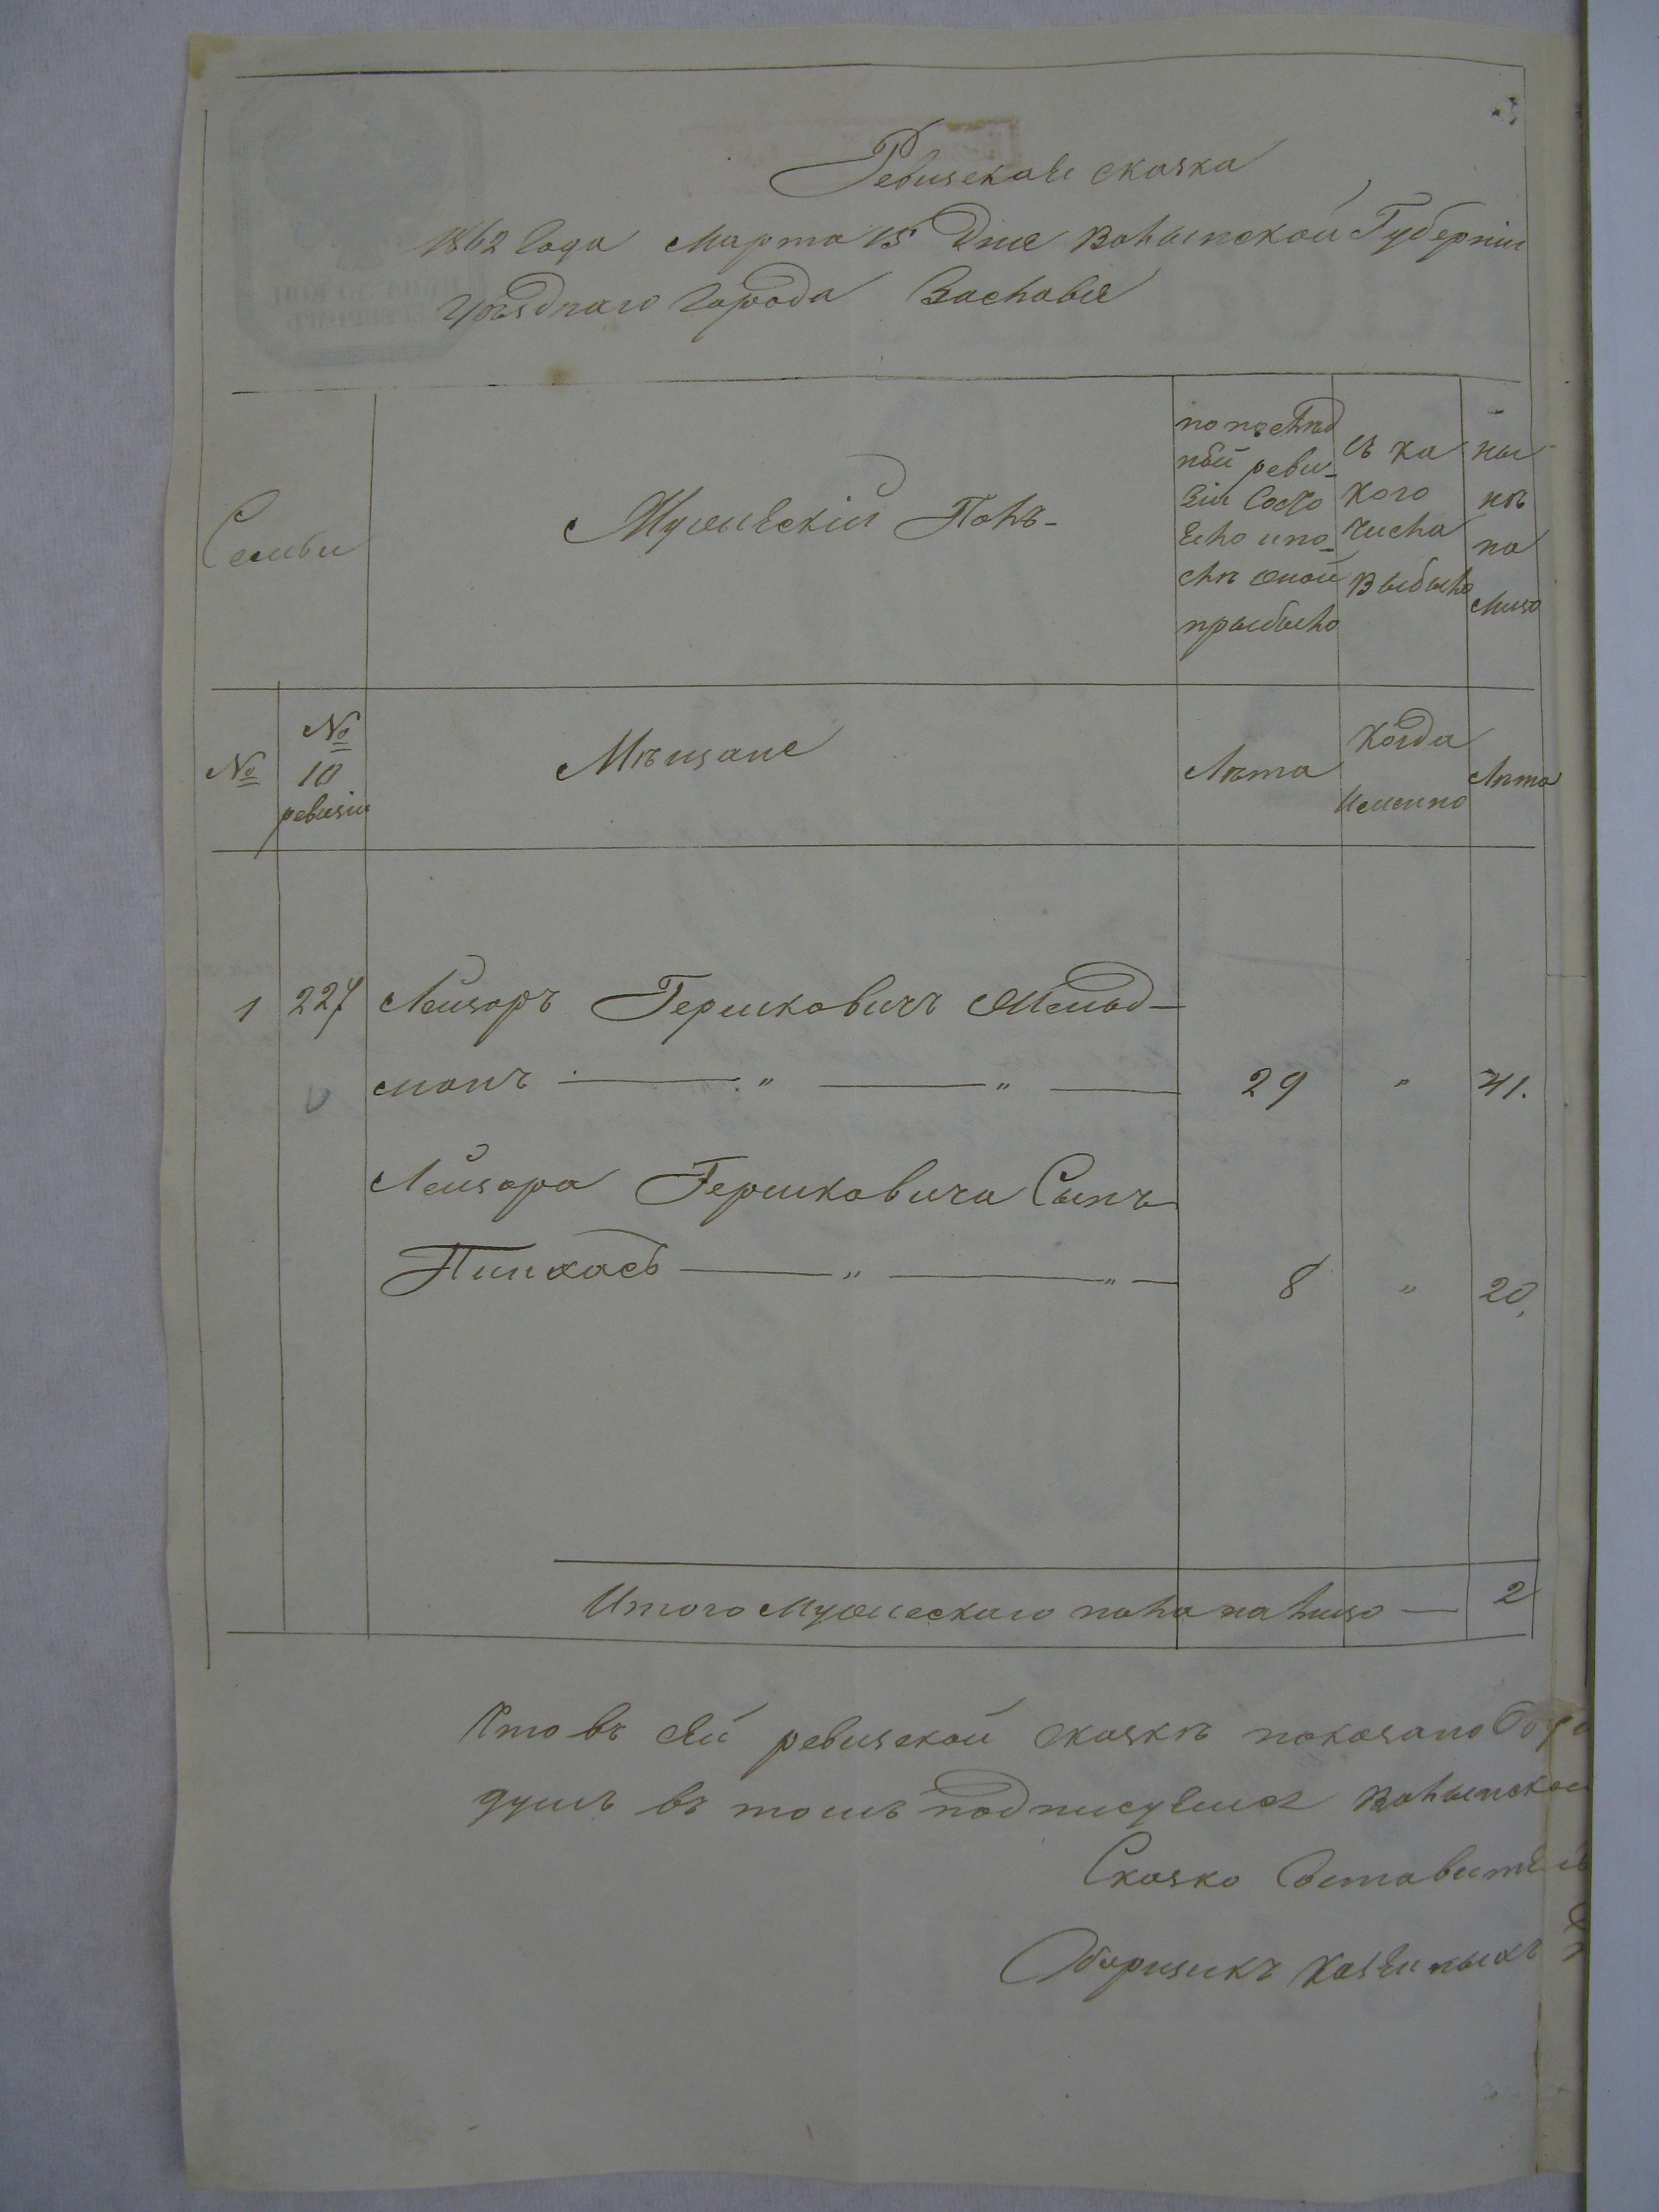 Ревизская сказка
1862 Года Марта 15 Дня Волынской Губерніи
Уѣзднаго Города Заславля
Семьи
Мужескій Полъ-
по послѣд
ней реви-
зіи Состо
яло и по-
слѣ оной
прыбыло
съ ка
кого
числа
Выбыло
ны
нѣ
на
лицо
№
№
10
ревизіи
Мѣщане
Лѣта
Когда
Именно
Лѣта
1 227 Лейзоръ Гершковичъ Мельд-
монъ — " — " — 29 " 41.
Лейзора Гершковича Сынъ
Пинхасъ — " — " — 8 " 20.
Итого Мужескаго пола на лицо — 2
Что въ сей ревизской сказкѣ показано
душъ въ томъ подписуемся Волынской
Сказко
Сборщикъ Казенныхъ